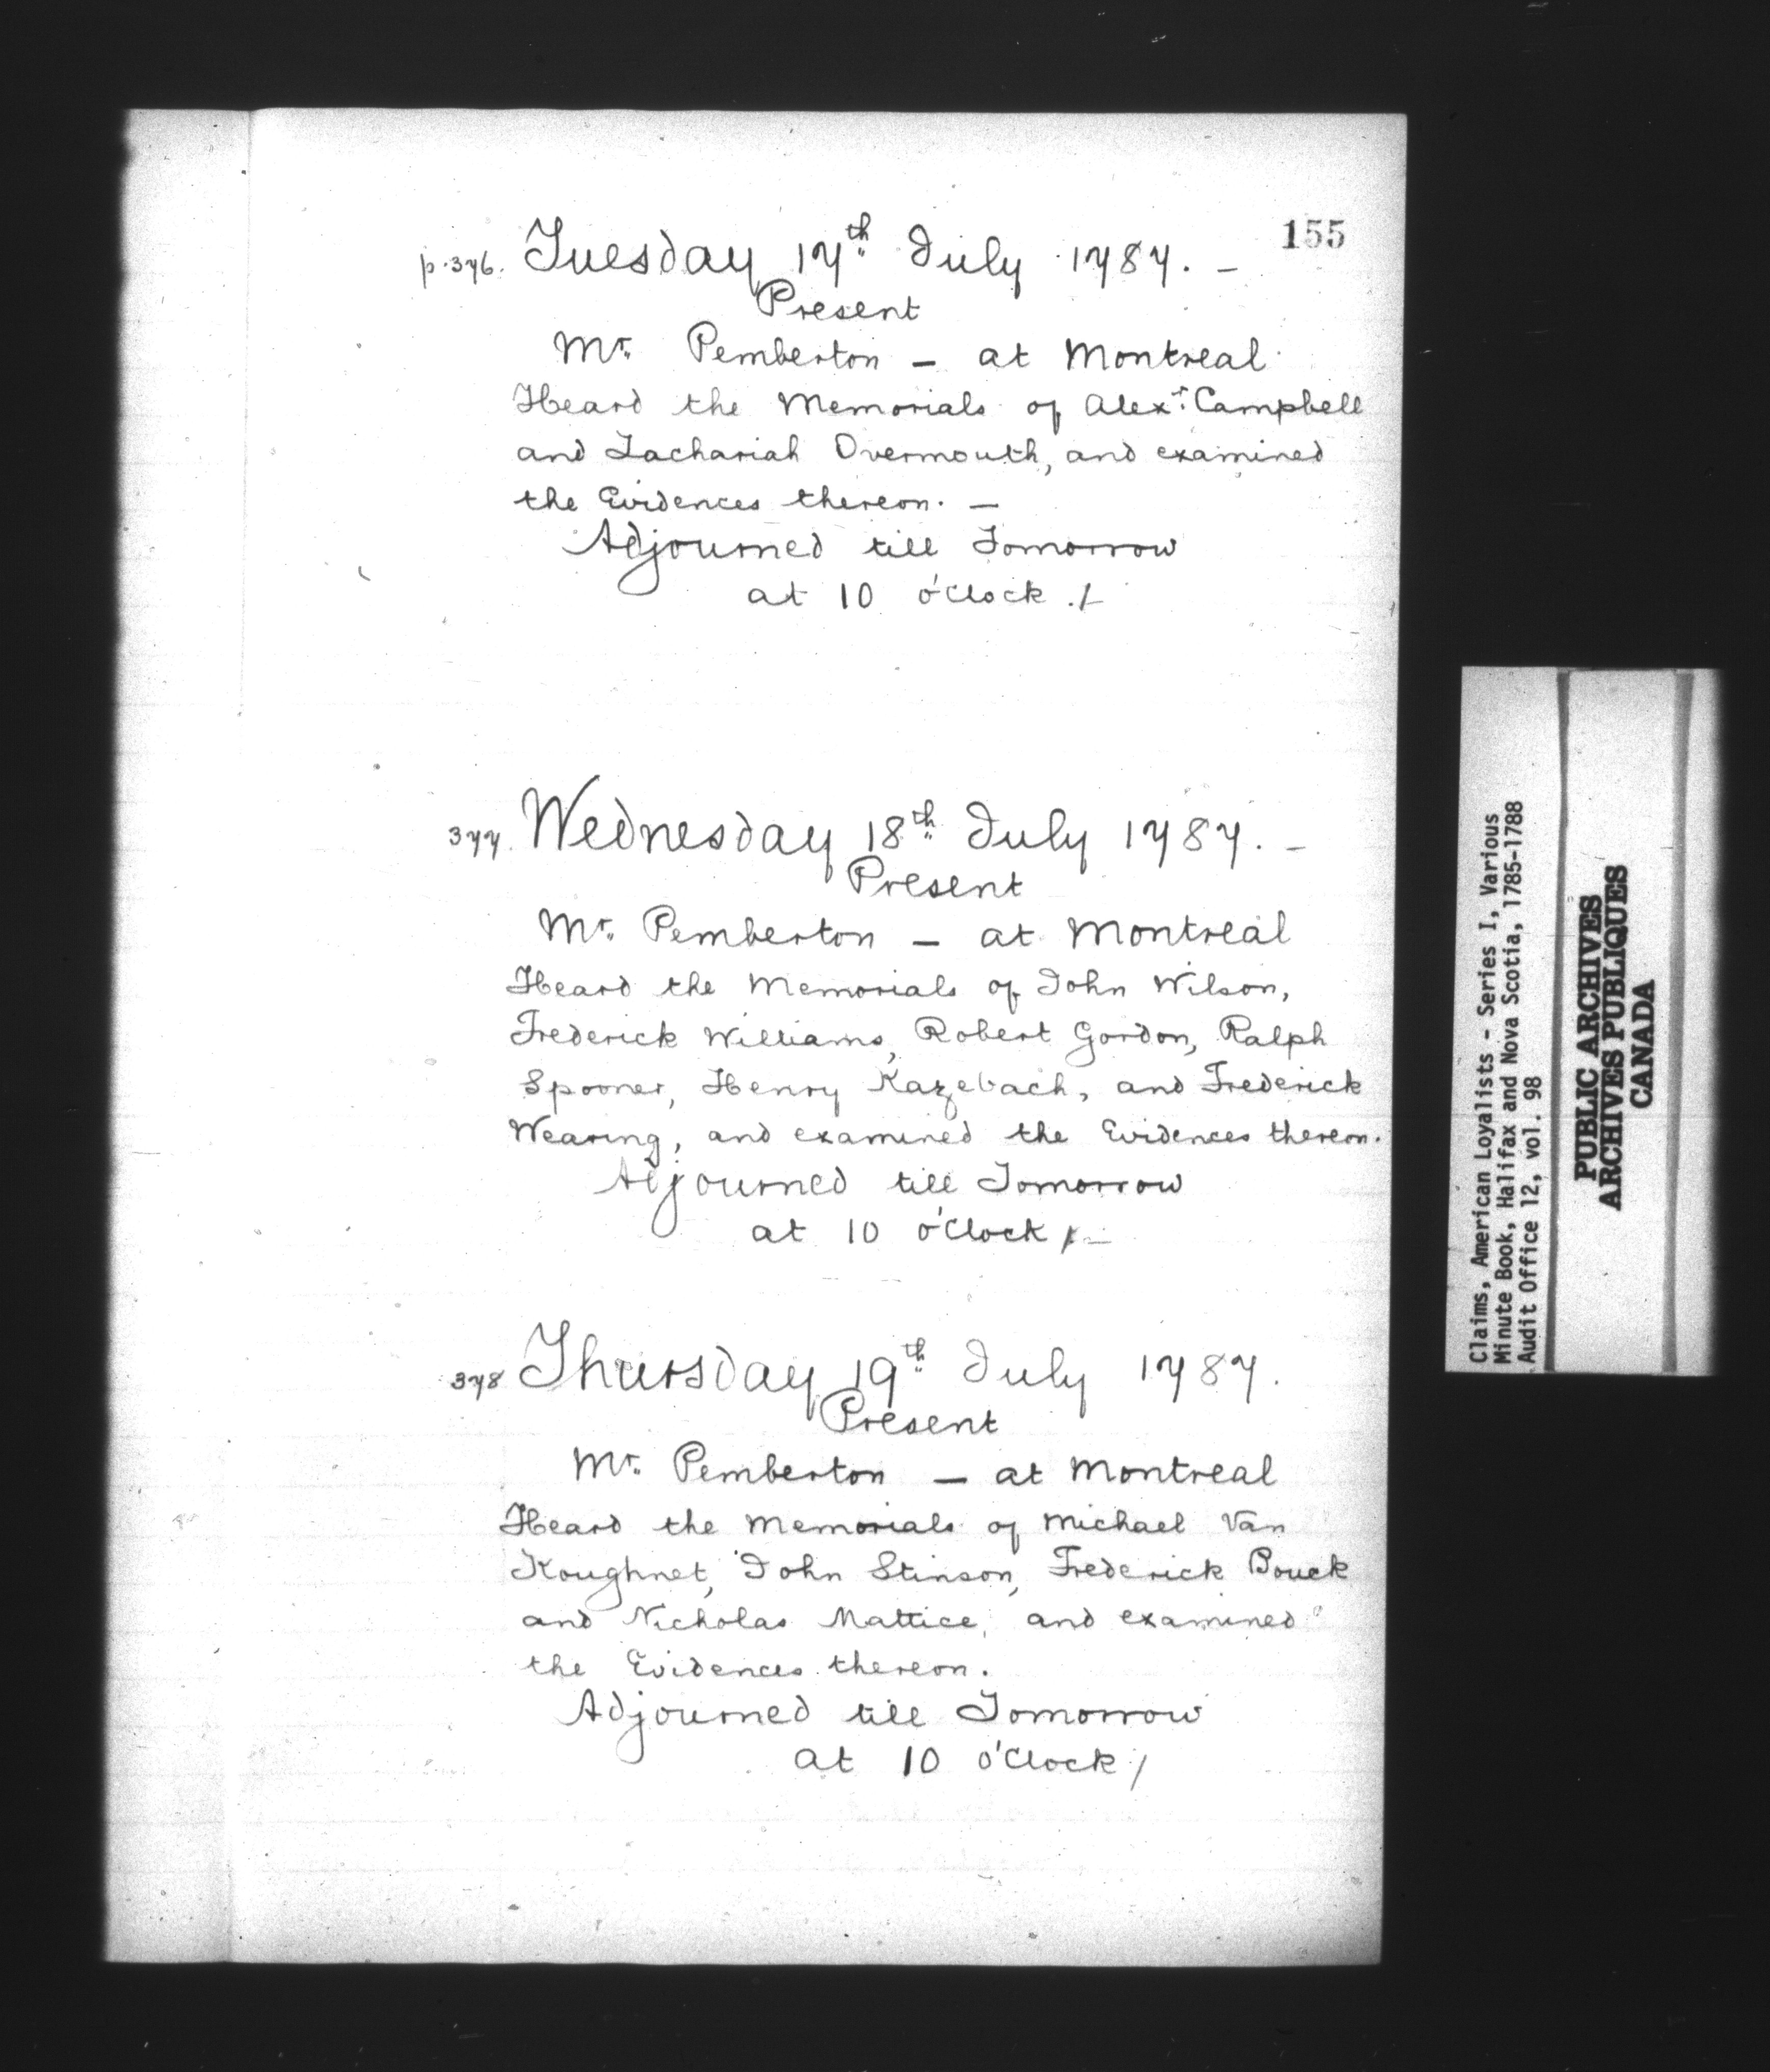 155
p. 376. Tuesday 17th July 1787. —
Present
Mr. Pemberton — at Montreal
Heard the Memorials of Alexr. Campbell
and Zachariah Overmouth, and examined
the Evidences thereon. —
Adjourned till Tomorrow
at 10 o'Clock ./—
377. Wednesday 18th July 1787. —
Present
Mr. Pemberton — at Montreal
Heard the Memorials of John Wilson,
Frederick Williams, Robert Gordon, Ralph
Spooner, Henry Kazebach, and Frederick
Wearing, and examined the Evidences thereon.
Adjourned till Tomorrow
at 10 o'Clock /—
378 Thursday 19th July 1787.
Present
Mr. Pemberton — at Montreal
Heard the Memorials of Michael Van
Koughnet, John Stinson, Frederick Bouck
and Nicholas Mattice, and examined
the Evidences thereon.
Adjourned till Tomorrow
at 10 o'Clock /
Claims, American Loyalists - Series I, Various
Minute Book, Halifax and Nova Scotia, 1785-1788
Audit Office 12, vol. 98
PUBLIC ARCHIVES
ARCHIVES PUBLIQUES
CANADA